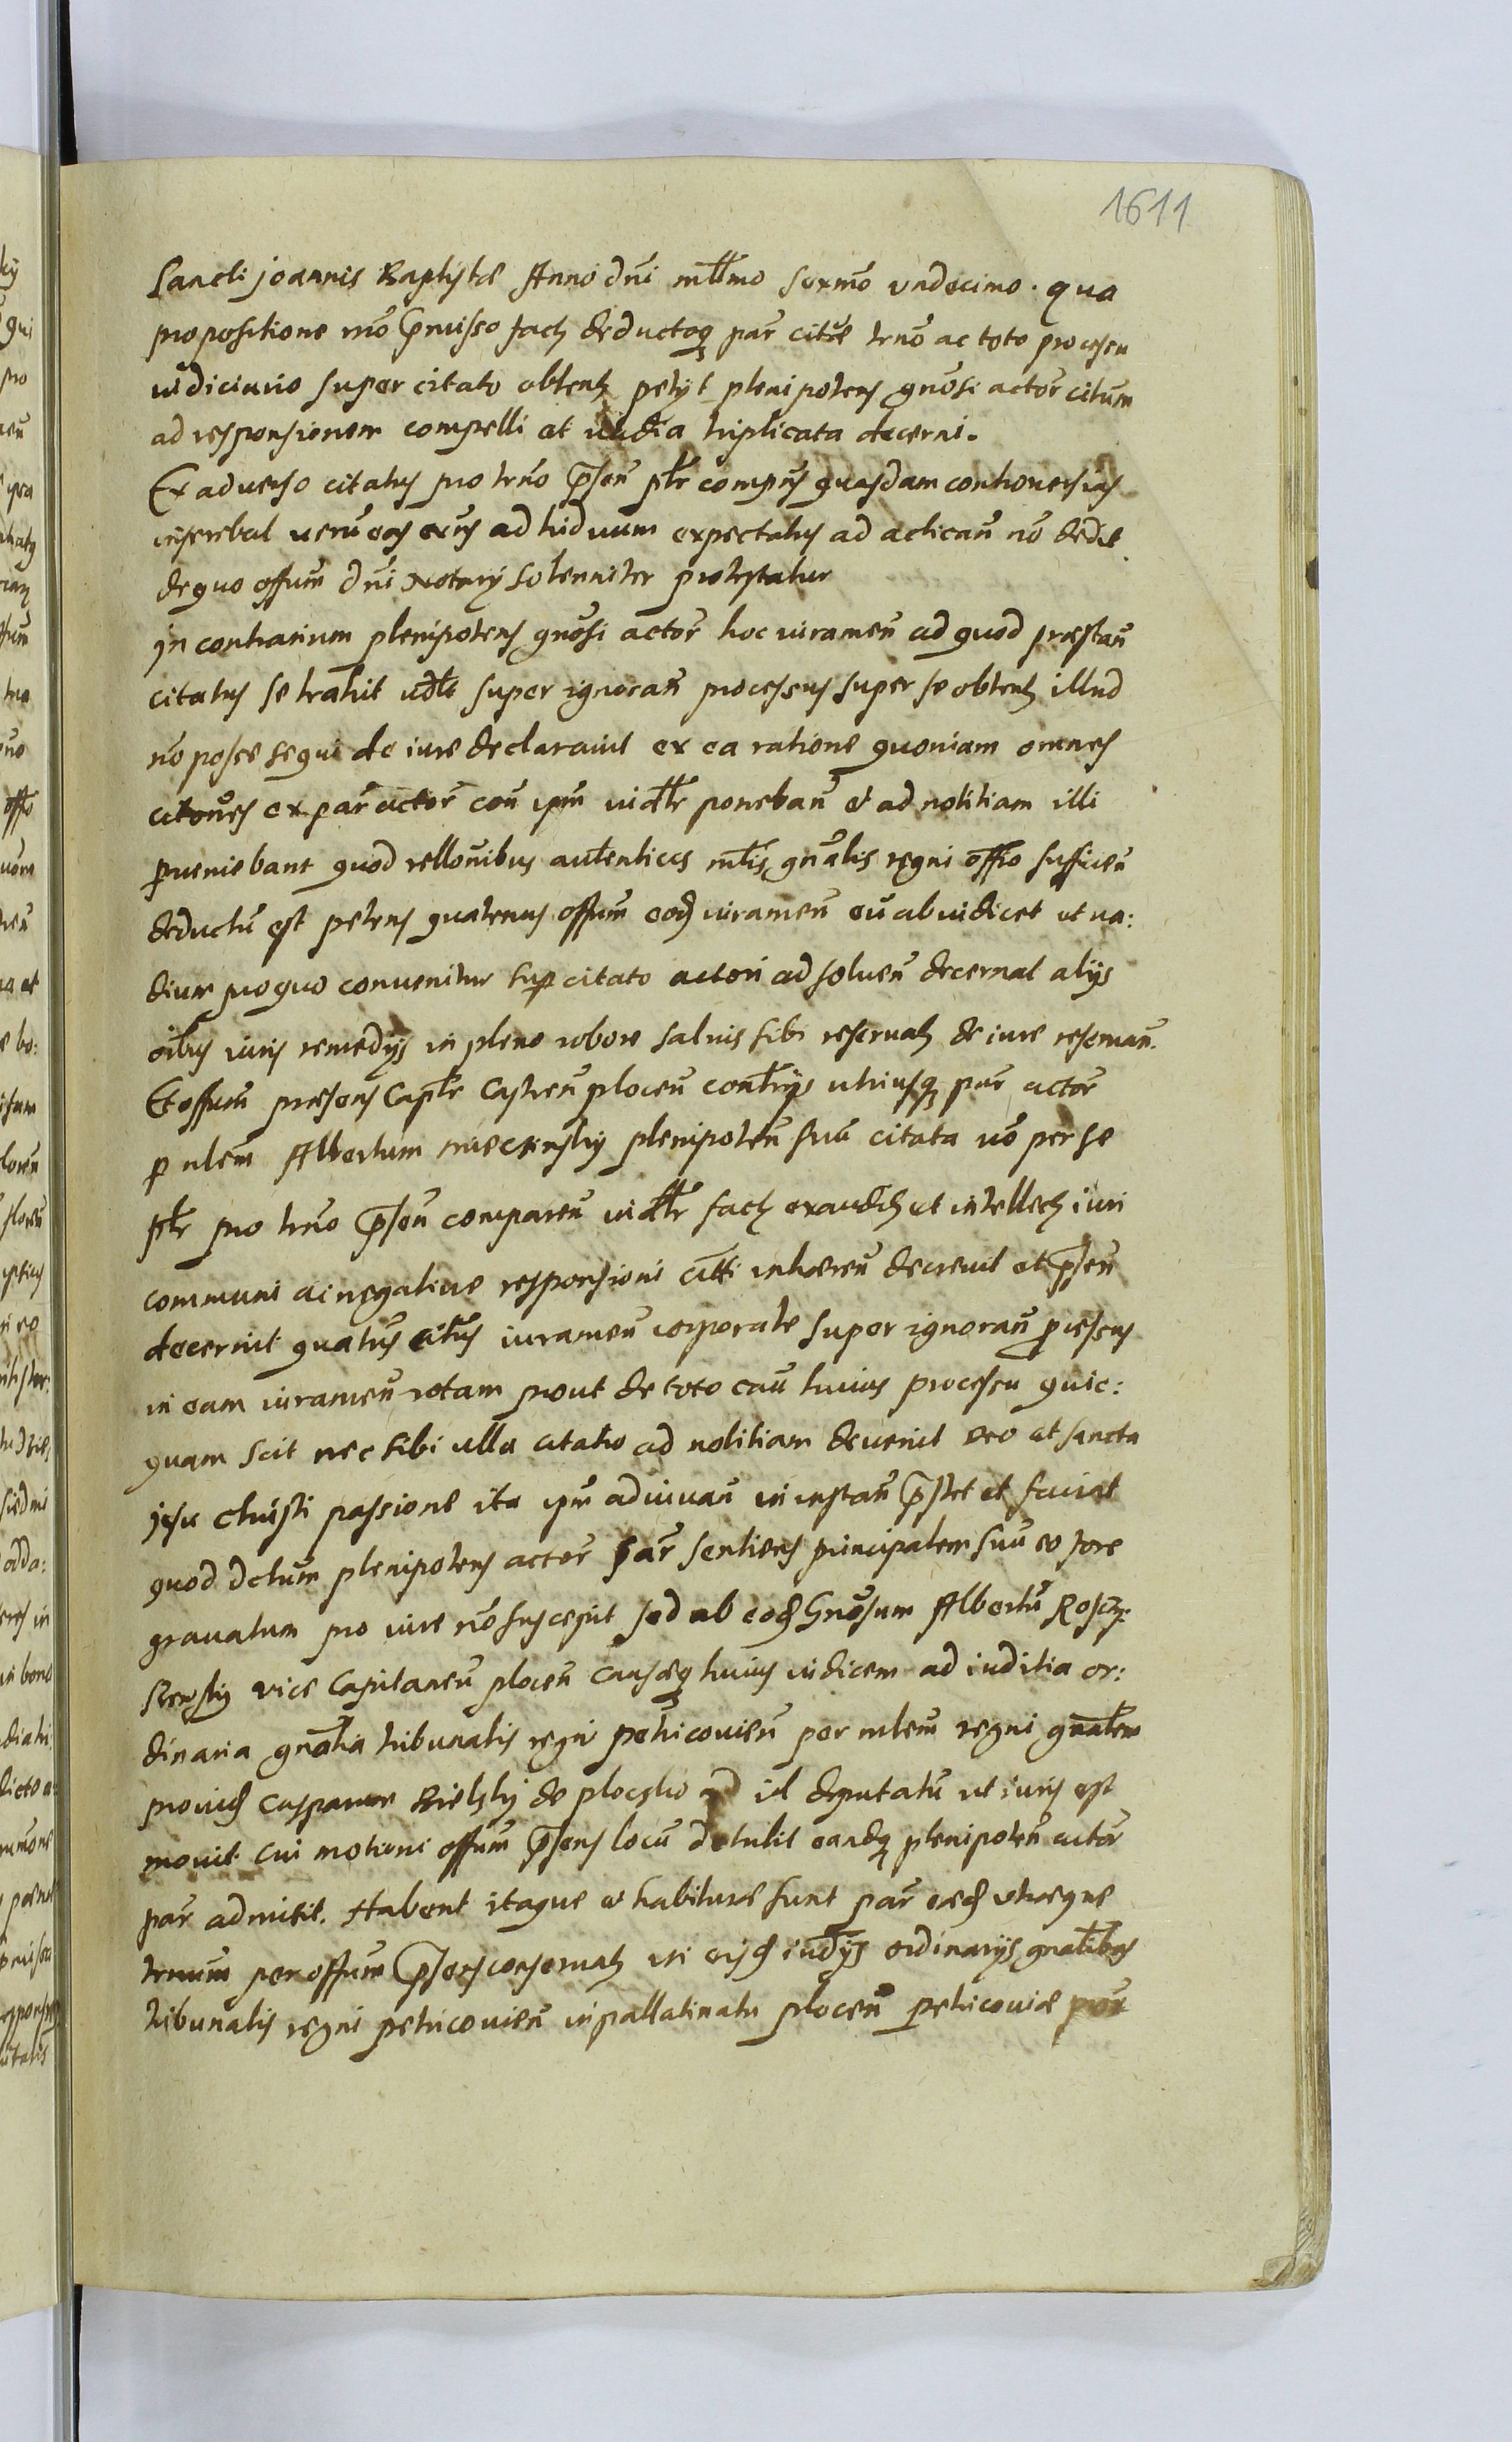 1611
Sancti Joannis Baptistæ Anno dni mllmo sexmo undecimo. qua
propositione mo pmisso fact deductaq par citæ trno ac toto processu
iudiciario super citato obtent petyt plenipotens gnosi actor citum
ad responsionem compelli et uadia triplicata decerni.
Ex aduerso citatus pro trno psen ptr compns quasdam controuersias
inserebat ueru eas ad triduum expectatus ad actican no dedit
de quo offum dni Notarij solenniter protestatur
In contrarium plenipotens gnosi actor hoc iuramen ad quod præstan
citatus se trahit super ignoran processus super se obtent illud
no posse sequi de iure declarauit ex ea ratione quoniam omnes
citones ex par actor con ipm iudltr poneban et ad notitiam illi
pueniebant quod rellonibus autenticis mlis gnalis regni offio sufficien
deductu est petens quatenus offum eod iuramen eu abiudicet et ua:
dium pro quo conuenitur sup citato actori ad soluen decernat alijs
oibus iuris remedijs in pleno robore saluis sibi reseruat de iure reseruan.
Et offum præsens Captr Castren plocen contrijs utriusq par actor
p nlem Albertum plenipoten suu citata uo per se
ptr pro trno psen comparen iudltr fact exaudit et intellect iuri
communi ac negatiue responsioni citti inhæren decreuit et psen
decernit quatus citus iuramen corporale super ignoran pcessus
in eam iuramen rotam prout de toto cau huius processu quic:
quam scit nec sibi ulla citatio ad notitiam deuenit deo et sancta
Jesu Christi passione ita ipm adiuuan in instan pstet et faciat
quod dctum plenipotens actor par sentiens principalem suu eo fore
grauatum pro iure no suscepit sed ab eod Gnosum Albertu Roscz:
szewskij vice Capitaneu plocen causæq huius iudicem ad iuditia or:
dinaria gnalia tribunalis regni petricouien per mlem regni gnalem
prouid Casparum Bielskij de plocsko ad id deputatu ut iuris est
mouit. Cui motioni offum psens locu detulit eandq plenipoten actor
par admisit. Habent itaque et habituræ sunt par eæd utræque
trnum per offum psens conseruat in eisd iudijs ordinarijs gnalibus
tribunalis regni petricouien in pallatinatu plocen petricouiæ